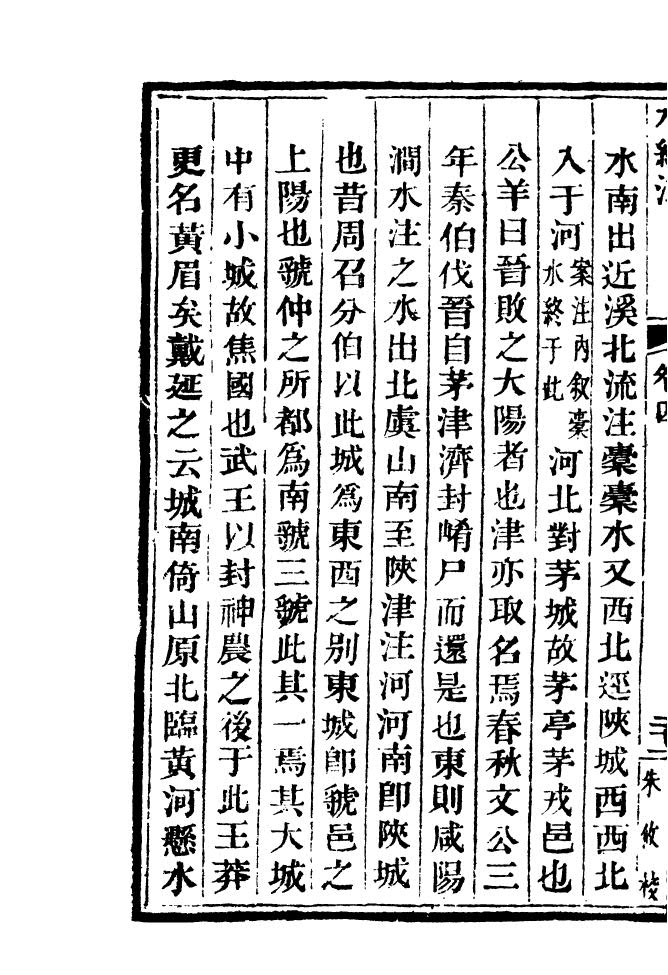 水經注
卷四
二十二
朱攸校
水南出近溪北流注橐橐水又西北逕陝城西西北
入于河案注內叙橐水終于此河北對茅城故茅亭茅戎邑也
公羊曰晉敗之大陽者也津亦取名焉春秋文公三
年秦伯伐晉自茅津濟封崤尸而還是也東則咸陽
澗水注之水出北虞山南至陝津注河河南卽陝城
也昔周召分伯以此城爲東西之别東城卽虢邑之
上陽也虢仲之所都爲南虢三虢此其一焉其大城
中有小城故焦國也武王以封神農之後于此王莽
更名黃眉矣戴延之云城南倚山原北臨黃河懸水